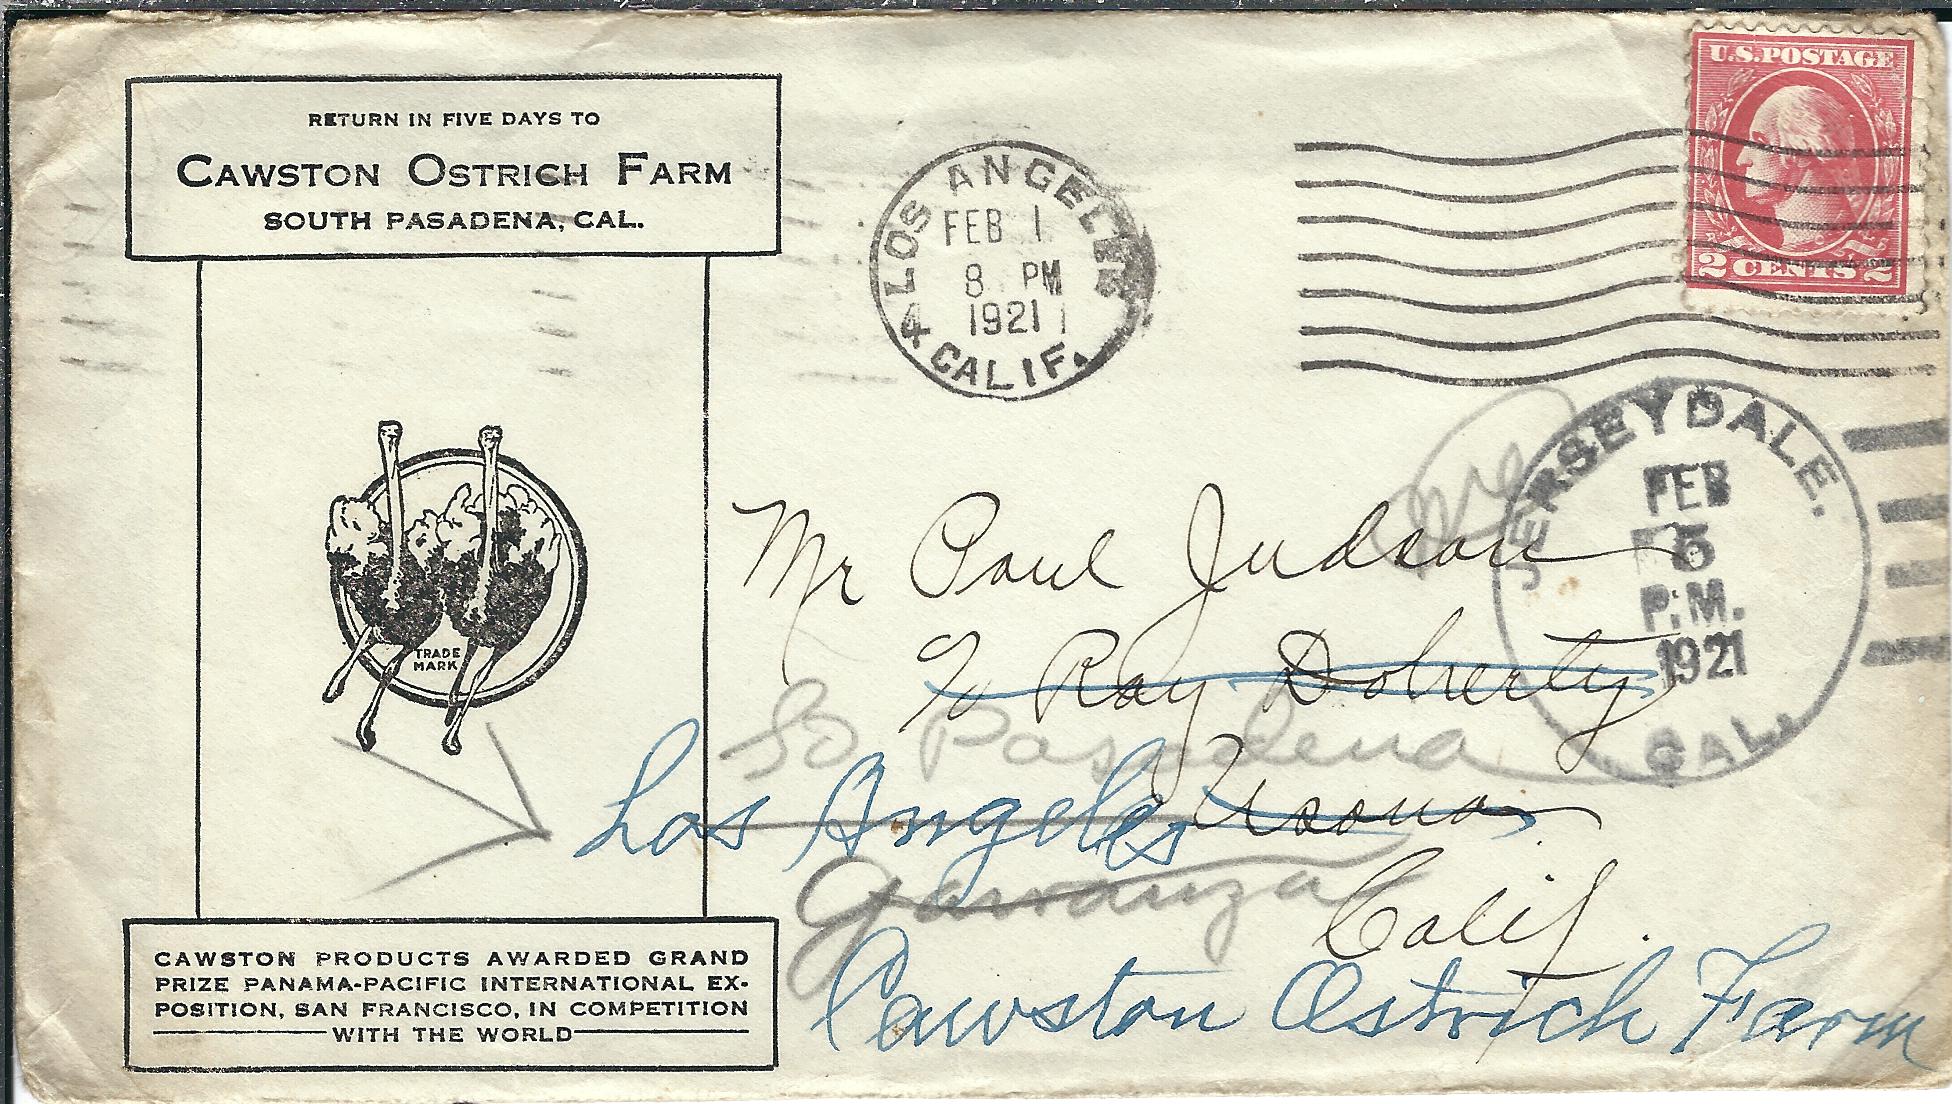 RETURN IN FIVE DAYS TO
CAWSTON OSTRICH FARM
SOUTH PASADENA, CAL.
TRADE
MARK
CAWSTON PRODUCTS AWARDED GRAND
PRIZE PANAMA-PACIFIC INTERNATIONAL EX-
POSITION, SAN FRANCISCO, IN COMPETITION
WITH THE WORLD
LOS ANGELES
FEB 1
8 PM
1921
CALIF.
U.S. POSTAGE
2 CENTS 2
JERSEYDALE.
FEB
5
P.M.
1921
CAL.
Mr Paul Judson
% Ray Doherty
So Pasadena
Usona
Los Angeles
Garvanza
Calif.
Cawston Ostrich Farm